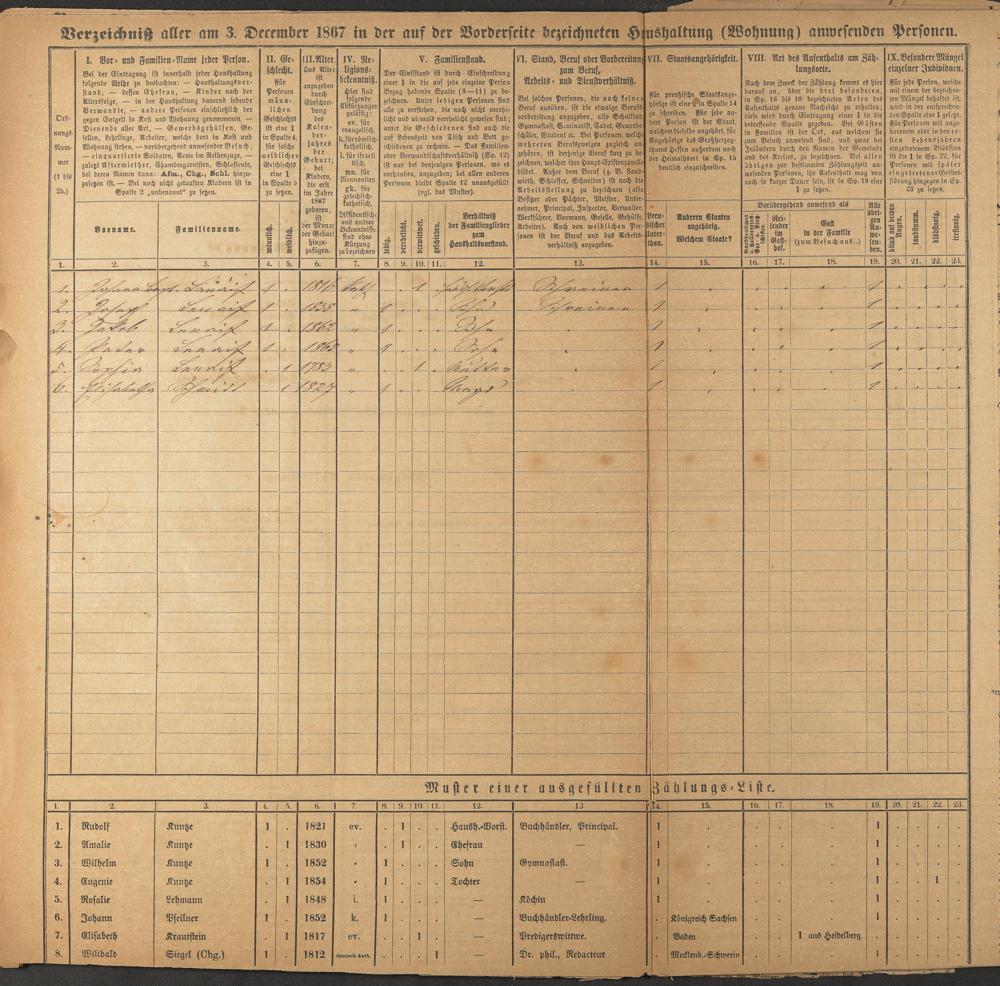 Verzeichniß aller am 3. December 1867 in der auf der Vorderseite bezeichneten Haushaltung (Wohnung) anwesenden Personen.
Ord-
nungs-
Num-
mer
(1 bis
25.)
I. Vor- und Familien-Name jeder Person.
Bei der Eintragung ist innerhalb jeder Haushaltung
folgende Reihe zu beobachten: — Haushaltungsvor-
stand, — dessen Ehefrau, — Kinder nach der
Altersfolge, — in der Haushaltung dauernd lebende
Verwandte, — andere Personen einschließlich der
gegen Entgelt in Kost und Wohnung genommenen, —
Dienende aller Art, — Gewerbsgehülfen, Ge-
sellen, Lehrlinge, Arbeiter, welche dort in Kost und
Wohnung stehen, — vorübergehend anwesender Besuch,
— einquartierte Soldaten, Arme im Reihenzuge, —
zuletzt Aftermiether, Chambregarnisten, Schlafleute,
bei deren Namen dann: Afm., Chg., Schl. hinzu-
zusetzen ist. — Bei noch nicht getauften Kindern ist in
Spalte 2 „unbenannt" zu setzen.
Vorname.
Familienname.
II. Ge-
schlecht.
Für
Personen
männ-
lichen
Geschlechts
ist eine 1
in Spalte 4,
für solche
weiblichen
Geschlechts
eine 1
in Spalte 5
zu setzen.
männlich.
weiblich.
III. Alter.
Das Alter
ist
anzugeben
durch
Einschrei-
bung
des
Kalen-
der-
jahres
der
Geburt;
bei
Kindern,
die erst
im Jahre
1867
geboren,
ist
der Monat
der Geburt
hinzu-
zufügen.
IV. Re-
ligions-
bekenntniß.
Hier sind
folgende
Abkürzungen
zulässig:
ev. für
evangelisch,
k. für römisch-
katholisch,
i. für israeli-
tisch,
mn. für
Mennoniten,
gk. für
griechisch-
katholisch.
Dissidentische
und andere
Bekenntnisse
sind ohne
Kürzung
zu bezeichnen
V. Familienstand.
Der Civilstand ist durch Einschreibung
einer 1 in die auf jede einzelne Person
Bezug habende Spalte (8—11) zu be-
zeichnen. Unter ledigen Personen sind
alle zu verstehen, die noch nicht verehe-
licht und niemals verehelicht gewesen sind;
unter die Geschiedenen sind auch die
auf Lebenszeit von Tisch und Bett ge-
schiedenen zu rechnen. — Das Familien-
oder Verwandtschaftsverhältniß (Sp. 12)
ist nur bei denjenigen Personen, wo es
vorhanden, anzugeben; bei allen anderen
Personen bleibt Spalte 12 unausgefüllt
(vgl. das Muster).
ledig.
verehelicht.
verwittwet.
geschieden.
Verhältniß
der Familienglieder
zum
Haushaltsvorstand.
VI. Stand, Beruf oder Vorbereitung
zum Beruf,
Arbeits- und Dienstverhältniß.
Bei solchen Personen, die noch keinen
Beruf ausüben, ist die etwaige Berufs-
vorbereitung anzugeben, also Schulkind
Gymnasiast, Seminarist, Cadet, Gewerbe-
schüler, Student u. Bei Personen, welche
mehreren Berufsweisen zugleich an-
gehören, ist derjenige Beruf kurz zu be-
zeichnen, welcher ihre Haupt-Existenzquelle
bildet. Außer dem Beruf (z. B. Land-
wirth, Schlosser, Schneider) ist noch die
Arbeitsstellung zu bezeichnen (also
Besitzer oder Pächter, Meister, Unter-
nehmer, Principal, Inspector, Verwalter,
Werkführer, Vormann, Geselle, Gehülfe,
Arbeiter). Auch von weiblichen Per-
sonen ist der Beruf und das Arbeits-
verhältniß anzugeben.
VII. Staatsangehörigkeit.
Für preußische Staatsange-
hörige ist eine 1 in Spalte 14
zu schreiben. Für jede an-
dere Person ist der Staat,
welchem dieselbe angehört, für
Angehörige des Großherzog-
thums Hessen außerdem noch
der Heimathsort in Sp. 15
deutlich einzuschreiben.
Preu-
ßischer
Unter-
than.
Anderen Staaten
angehörig.
Welchem Staate?
VIII. Art des Aufenthalts am Zäh-
lungsorte.
Nach dem Zweck der Zählung kommt es hier
darauf an, über die drei besonderen,
in Sp. 16 bis 18 bezeichneten Arten des
Aufenthalts genaue Nachricht zu erhalten;
dies wird durch Eintragung einer 1 in die
betreffende Spalte gegeben. Bei Gästen
in Familien ist der Ort, aus welchem sie
zum Besuch anwesend sind, und zwar bei
Inländern durch den Namen der Gemeinde
und des Kreises, zu bezeichnen. Bei allen
übrigen zur bestimmten Zählungszeit an-
wesenden Personen, ihr Aufenthalt mag von
noch so kurzer Dauer sein, ist in Sp. 19 eine
1 zu setzen.
Vorübergehend anwesend als
Rei-
sender
im
Gast-
hof.
Gast
in der Familie
(zum Besuch aus..)
Alle
übri-
gen
An-
we-
sen-
den.
IX. Besondere Mängel
einzelner Individuen.
Für jede Person, welche
mit einem der bezeich-
neten Mängel behaftet ist,
wird in der entsprechen-
den Spalte eine 1 gesetzt.
Für Personen mit ange-
borenem oder in den er-
sten Lebensjahren
eingetretenem Blödsinn
ist die 1 in Sp. 22, für
Personen mit später
eingetretener Geistes-
störung hingegen in Sp.
23 zu setzen.
blind auf beiden
Augen.
taubstumm.
blödsinnig.
irrsinnig.
1. 2. 3. 4. 5. 6. 7. 8. 9. 10. 11. 12. 13. 14. 15. 16. 17. 18. 19. 20. 21. 22. 23.
1. 1 . 1816 Kath . . 1 . Schreiner 1 1
2. Joseph 1 . 1858 " 1 . . . Sohn Schreiner 1 1
3. Jakob 1 . 1862 " 1 . . . Sohn 1 1
4. Peter 1 . 1865 " 1 . . . Sohn 1 1
5. Sophia . 1 " . . 1 . Mutter 1 1
6. Elisabetha . 1 1827 " 1 . . . Magd 1 1
Muster einer ausgefüllten Zählungs-Liste.
1. 2. 3. 4. 5. 6. 7. 8. 9. 10. 11. 12. 13 14. 15. 16. 17. 18. 19. 20. 21. 22. 23.
1. Rudolf Kuntze 1 . 1821 ev. . 1 . . Haush.-Vorst. Buchhändler, Principal. 1 . . . . 1 . . . .
2. Amalie Kuntze . 1 1830 " . 1 . . Ehefrau — 1 . . . . 1 . . . .
3. Wilhelm Kuntze 1 . 1852 " 1 . . . Sohn Gymnasiast. 1 . . . . 1 . . . .
4. Eugenie Kuntze . 1 1854 " 1 . . . Tochter — 1 . . . . 1 . . 1 .
5. Rosalie Lehmann . 1 1848 i. 1 . . . — Köchin 1 . . . . 1 . . . .
6. Johann Pfeilner 1 . 1852 k. 1 . . . — Buchhändler-Lehrling. . Königreich Sachsen . . . 1 . . . .
7. Elisabeth Krautstein . 1 1817 ev. . . 1 . — Predigerswittwe. . Baden . . 1 aus Heidelberg . . . . .
8. Wilibald Siegel (Chg.) 1 . 1812 deutsch-kath. . . . 1 — Dr. phil., Redacteur . Mecklenb.-Schwerin . . . 1 . . . .